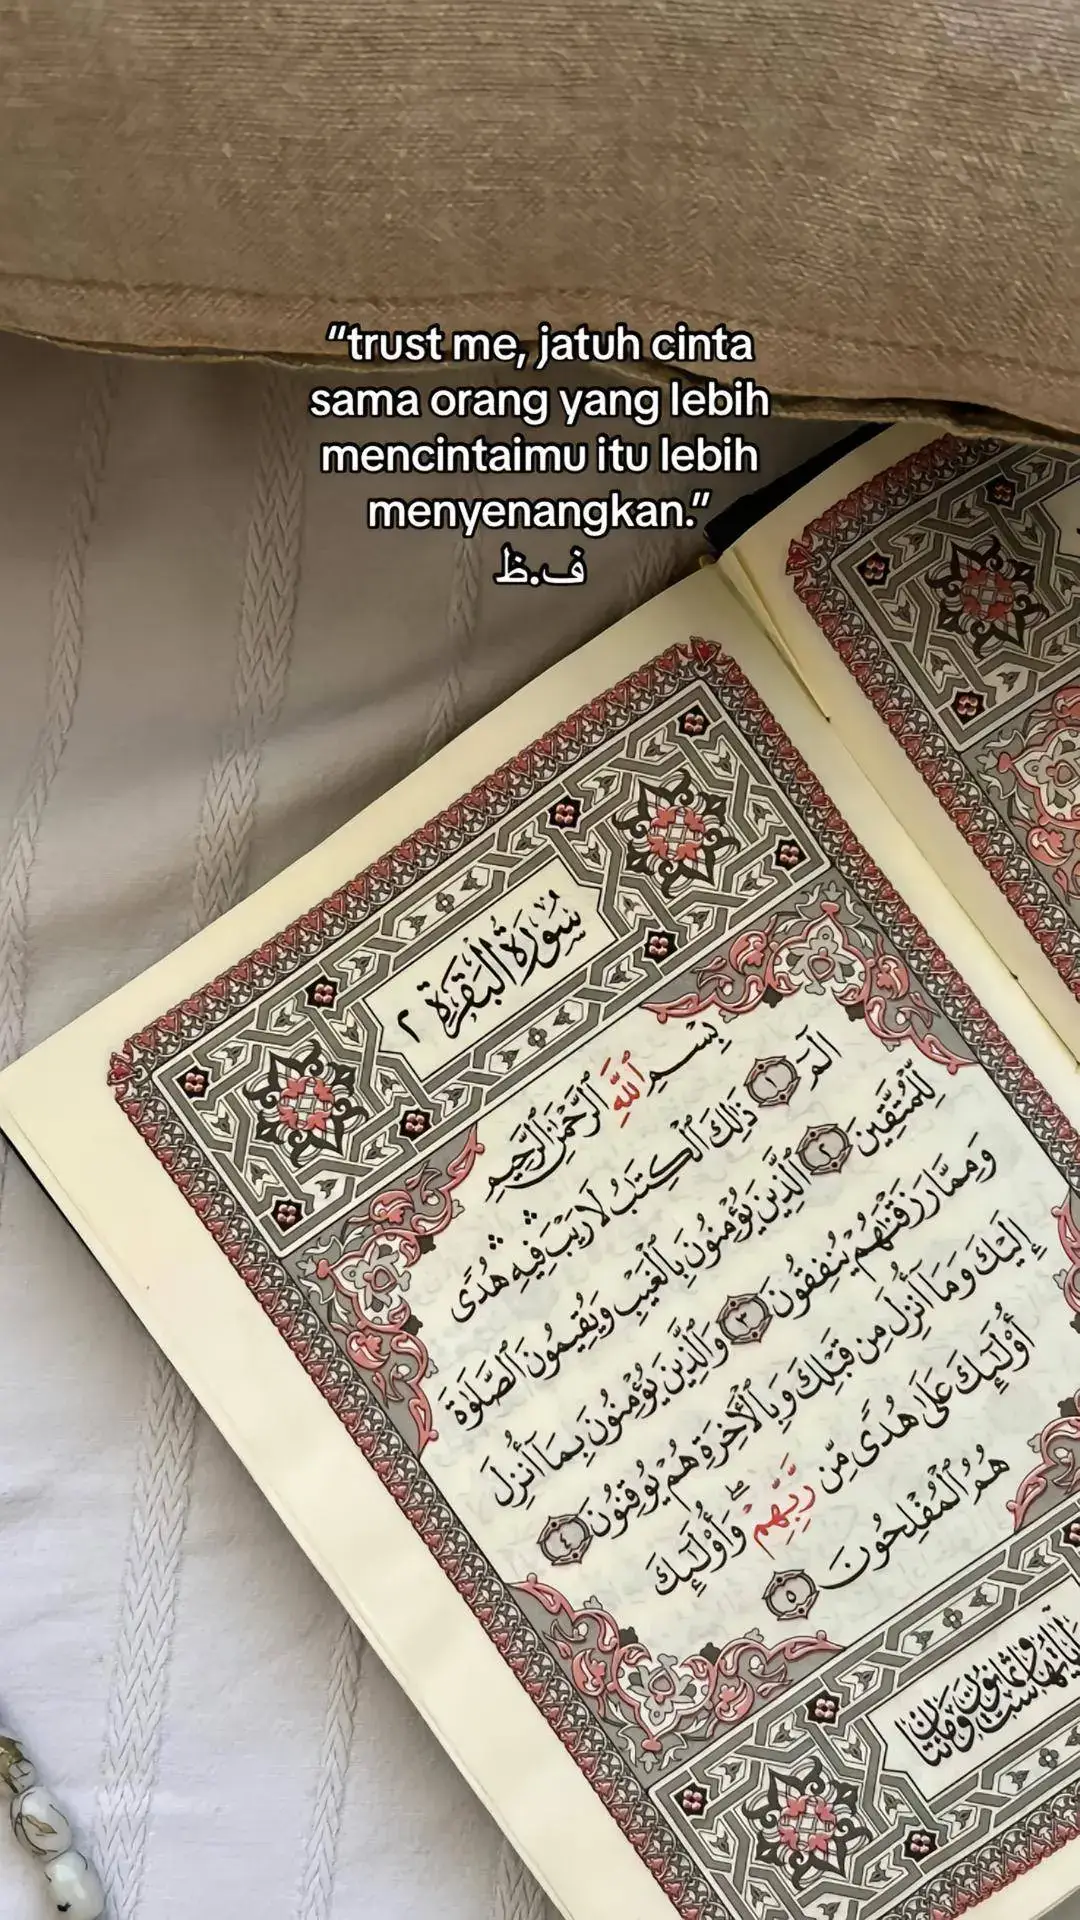 “trust me, jatuh cinta
sama orang yang lebih
mencintaimu itu lebih
menyenangkan.”
ف.ظ
سُورَةُ الْبَقَرَةِ ٢
بِسْمِ ٱللَّهِ ٱلرَّحْمَٰنِ ٱلرَّحِيمِ
الٓمٓ ١ ذَٰلِكَ ٱلْكِتَٰبُ لَا رَيْبَ ۛ فِيهِ ۛ هُدًى
لِّلْمُتَّقِينَ ٢ ٱلَّذِينَ يُؤْمِنُونَ بِٱلْغَيْبِ وَيُقِيمُونَ ٱلصَّلَوٰةَ
وَمِمَّا رَزَقْنَٰهُمْ يُنفِقُونَ ٣ وَٱلَّذِينَ يُؤْمِنُونَ بِمَآ أُنزِلَ
إِلَيْكَ وَمَآ أُنزِلَ مِن قَبْلِكَ وَبِٱلْءَاخِرَةِ هُمْ يُوقِنُونَ ٤
أُو۟لَٰٓئِكَ عَلَىٰ هُدًى مِّن رَّبِّهِمْ ۖ وَأُو۟لَٰٓئِكَ
هُمُ ٱلْمُفْلِحُونَ ٥